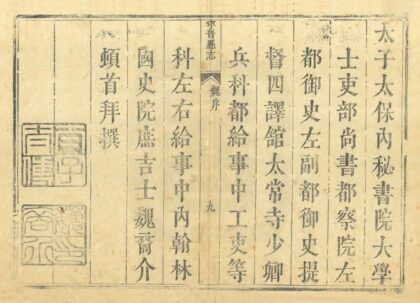 太子太保內秘書院大學
士吏部尚書都察院左
都御史左副都御史提
督四譯館太常寺少卿
寧晉縣志
魏序
九
兵科都給事中工吏等
科左右給事中內翰林
國史院庶吉士魏裔介
頓首拜撰